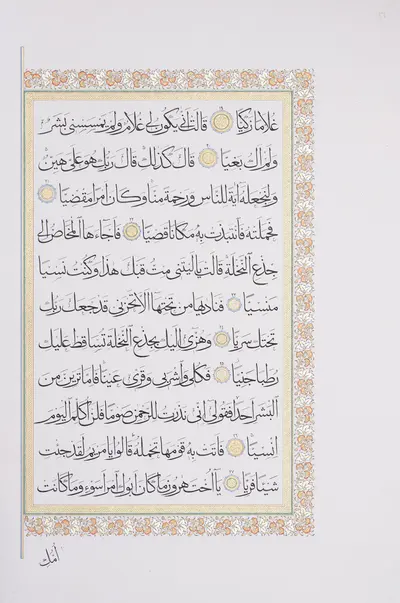 غلاما زكيا ۝ قالت أنى يكون لي غلام ولم يمسسني بشر
ولم أك بغيا ۝ قال كذلك قال ربك هو علي هين
ولنجعله آية للناس ورحمة منا وكان أمرا مقضيا ۝
فحملته فانتبذت به مكانا قصيا ۝ فأجاءها المخاض إلى
جذع النخلة قالت يا ليتني مت قبل هذا وكنت نسيا
منسيا ۝ فناداها من تحتها ألا تحزني قد جعل ربك
تحتك سريا ۝ وهزي إليك بجذع النخلة تساقط عليك
رطبا جنيا ۝ فكلي واشربي وقري عينا فإما ترين من
البشر أحدا فقولي إني نذرت للرحمن صوما فلن أكلم اليوم
إنسيا ۝ فأتت به قومها تحمله قالوا يا مريم لقد جئت
شيئا فريا ۝ يا أخت هرون ما كان أبوك امرأ سوء وما كانت
أمك